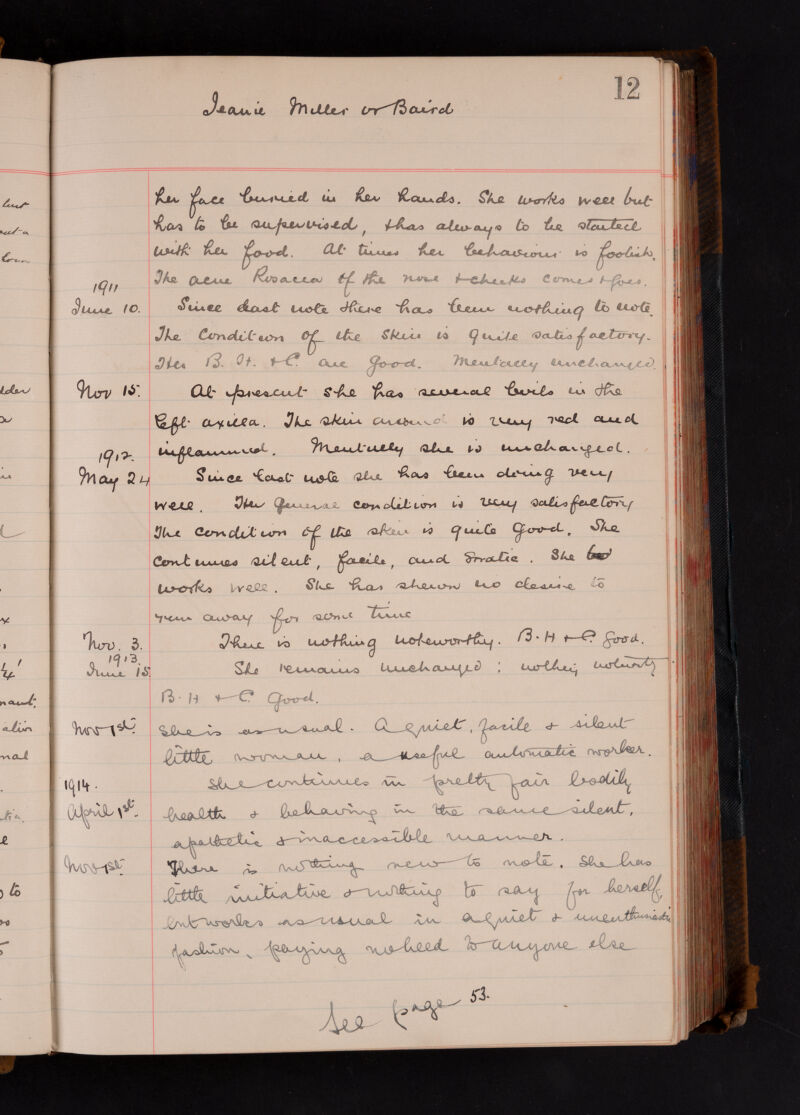 12
Jeanie Miller or Baird
her face buried in her hands. She works well but
has to be supervised, & has always to be started
with her food. At times her behaviour is foolish.
The acne Rosacea of the nose & cheeks comes & goes.
1911
June 10. Since last note there has been nothing to note.
The Condition of the skin is quite satisfactory.
Her B. H. & C. are good. Mentally unchanged.
Nov 15. At present she has several boils in the
left axilla. The skin around is very red and
inflammed. Mentally she is unchanged.
1912.
May 24 Since last note she has been doing very
well. Her general condition is very satisfactory
The condition of the skin is quite good. She
continues silent, facile, and erratic. She
works well. She has shewn no desire to
run away for some time
Nov. 3. There is nothing noteworthy. B. H & C. good.
1913.
June 15. She remains unchanged : nothing
B. H & C. Good.
Nov 1st. She is as usual. A quiet, facile & silent
little woman, a useful automatic worker.
1914. She continues in pretty fair bodily
April 1st. health & behaving in the same silent,
apathetic & inaccessible manner.
Nov 1st There is nothing new to note. She has
little initiative & nothing to say for herself,
but works as usual in a quiet & unenthusiastic
fashion, paying no heed to anyone else
See page 53.